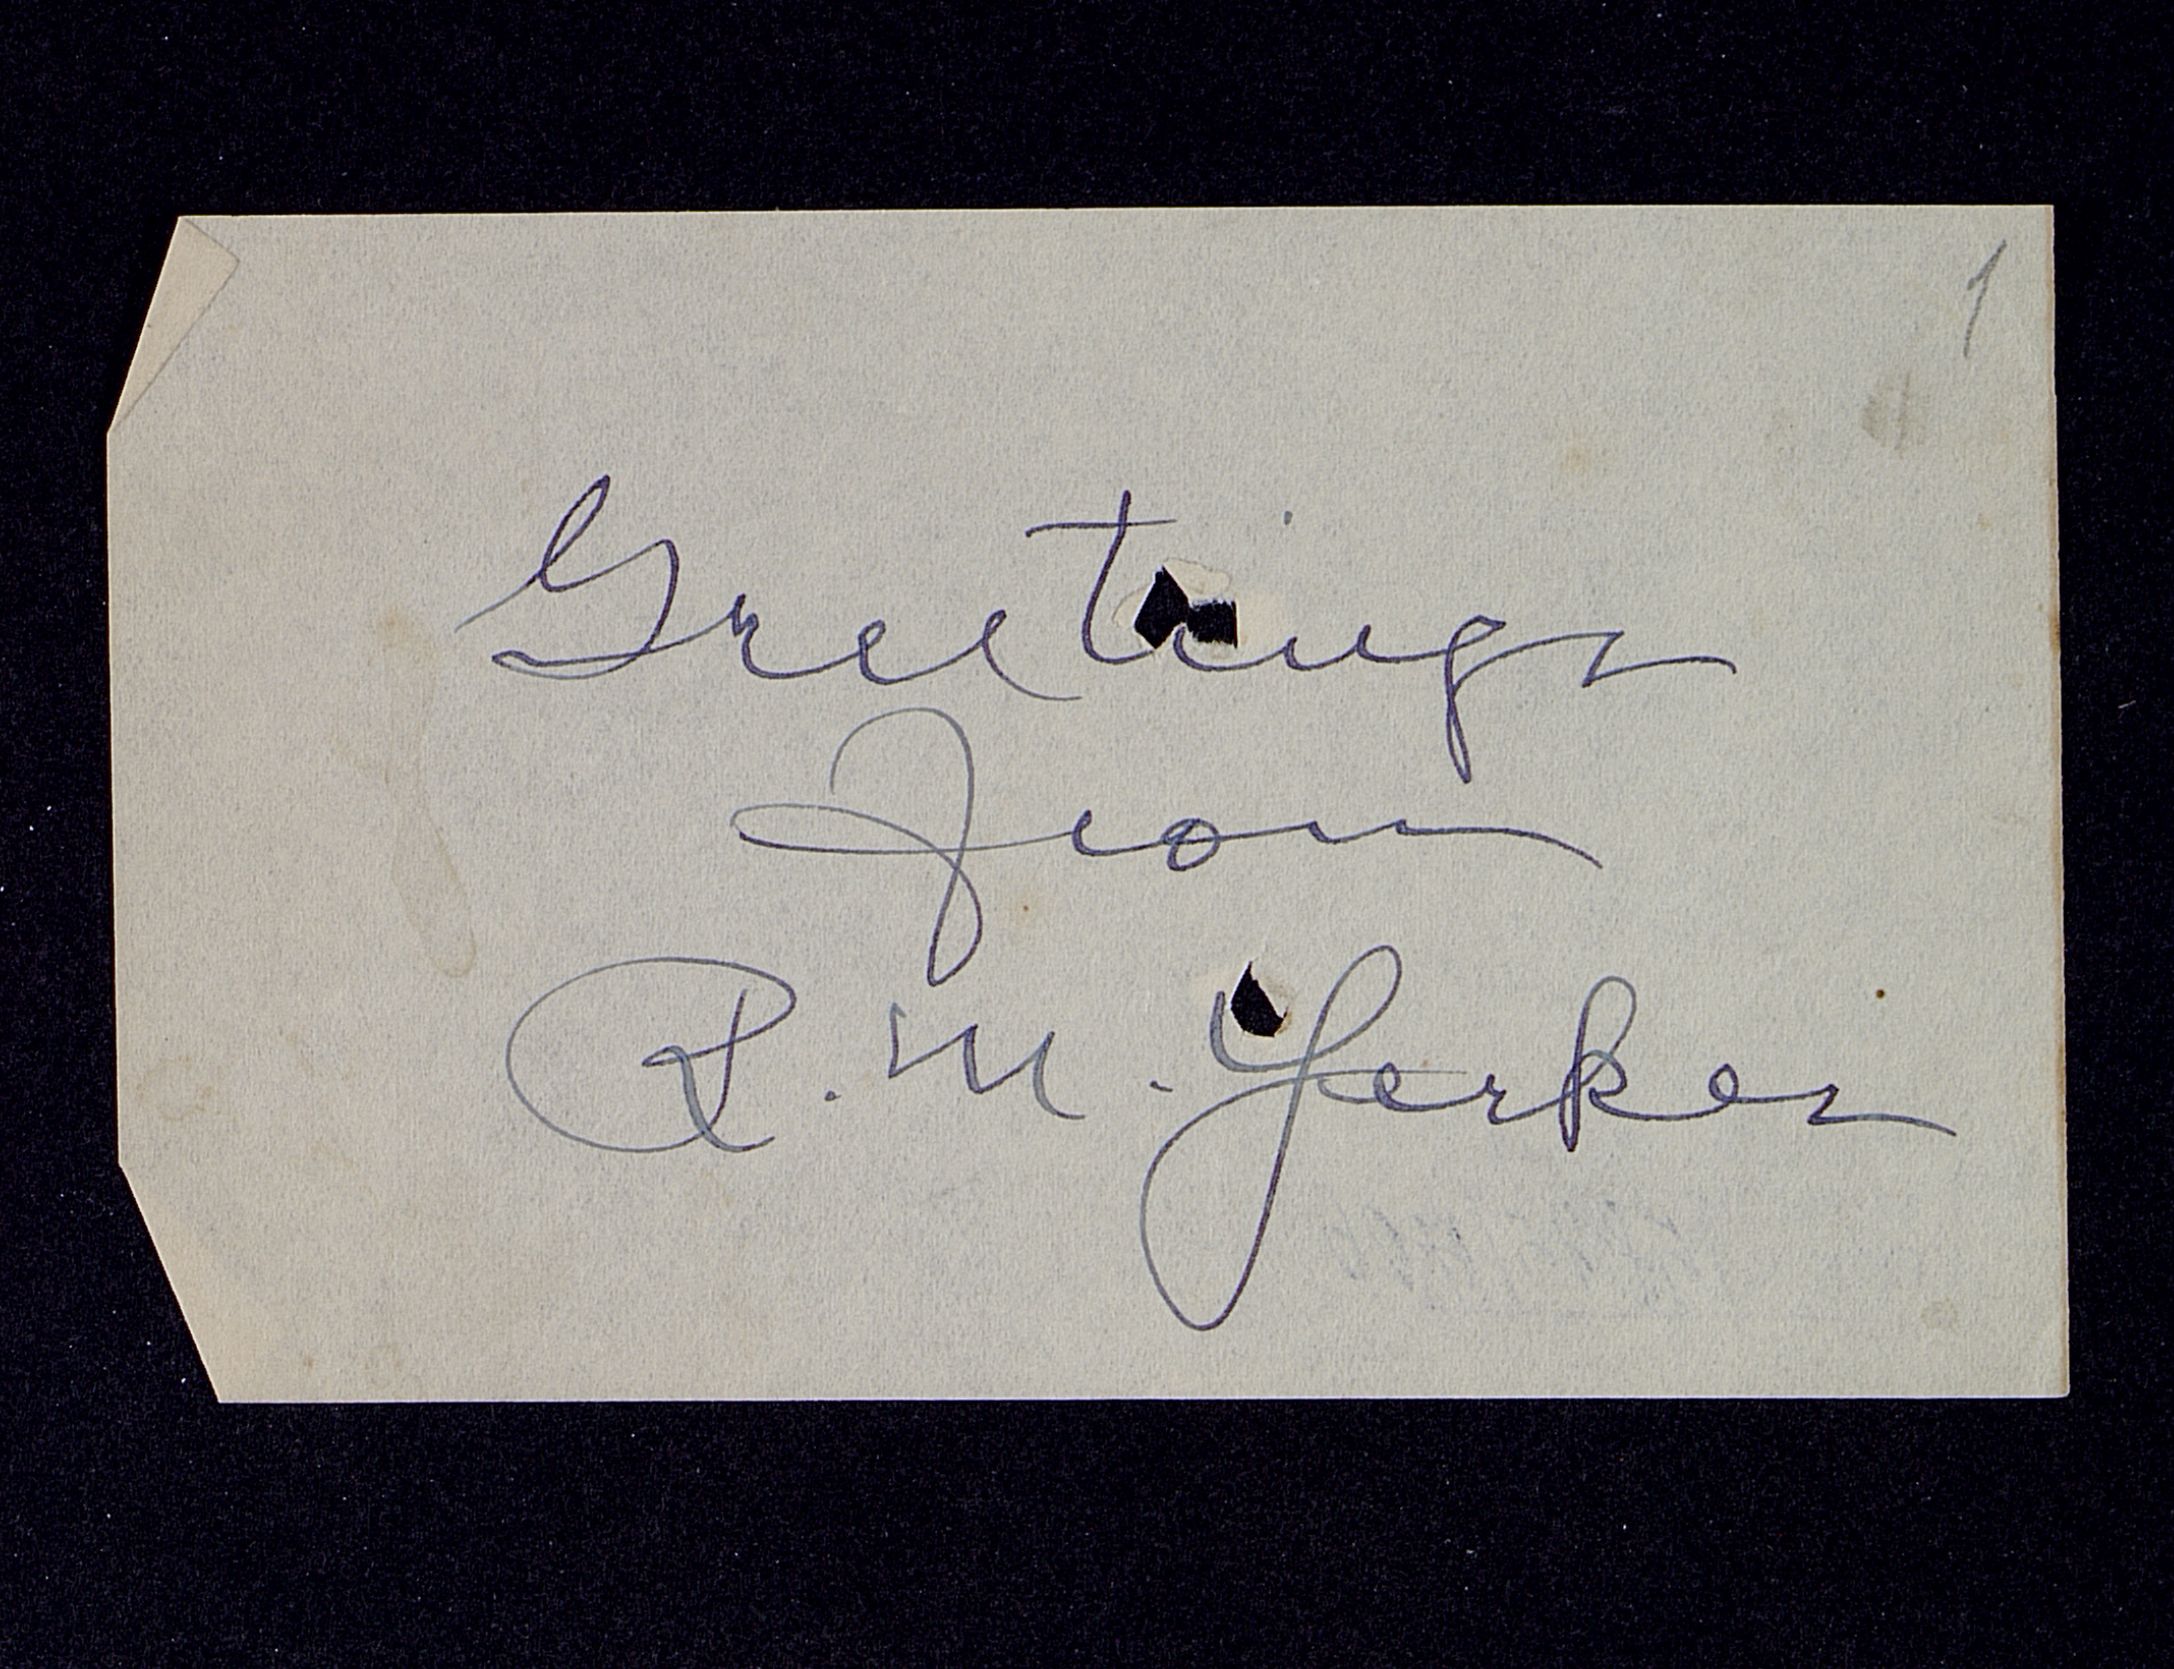 1
Greetings
from
R. M. Yerkes